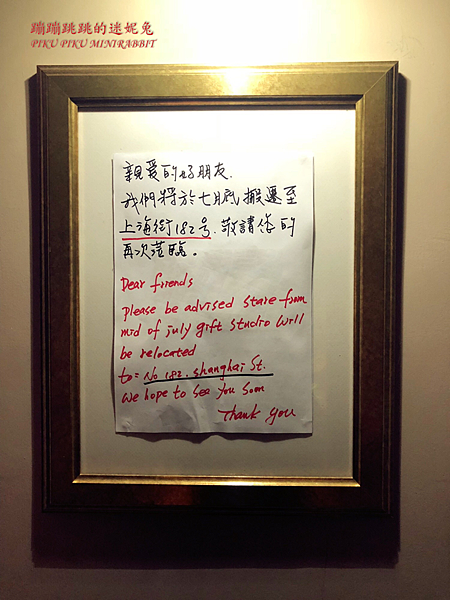 蹦蹦跳跳的迷妮兔
PIKU PIKU MINIRABBIT
親愛的好朋友.
我們將於七月底搬遷至
上海街182号.敬請您的
再次蒞臨。
Dear friends
please be advised stare from
mid of july gift studio will
be relocated
to= No 182. shanghai St.
we hope to see you soon
Thank you